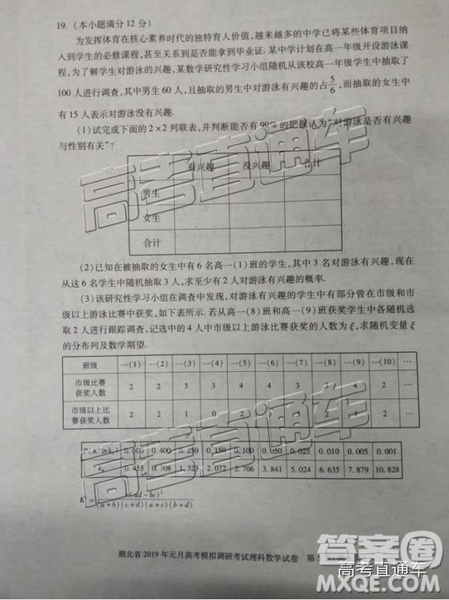 19. (本小题满分 12 分)
为发挥体育在核心素养时代的独特育人价值,越来越多的中学已将某些体育项目纳
入到学生的必修课程,甚至关系到是否能拿到毕业证. 某中学计划在高一年级开设游泳课
程,为了解学生对游泳的兴趣,某数学研究性学习小组随机从该校高一年级学生中抽取了
100 人进行调查,其中男生 60 人,且抽取的男生中对游泳有兴趣的占5/6,而抽取的女生中
有 15 人表示对游泳没有兴趣.
(1)试完成下面的 2×2 列联表,并判断能否有 99% 的把握认为“对游泳是否有兴趣
与性别有关”?
有兴趣 没兴趣 合计
男生
女生
合计
(2)已知在被抽取的女生中有 6 名高一(1)班的学生,其中 3 名对游泳有兴趣,现在
从这 6 名学生中随机抽取 3 人,求至少有 2 人对游泳有兴趣的概率.
(3)该研究性学习小组在调查中发现,对游泳有兴趣的学生中有部分曾在市级和市
级以上游泳比赛中获奖,如下表所示. 若从高一(8)班和高一(9)班获奖学生中各随机选
取 2 人进行跟踪调查,记选中的 4 人中市级以上游泳比赛获奖的人数为 ξ,求随机变量 ξ
的分布列及数学期望.
班级 一(1) 一(2) 一(3) 一(4) 一(5) 一(6) 一(7) 一(8) 一(9) 一(10) …
市级比赛
获奖人数 2 2 3 3 4 4 3 3 4 2 …
市级以上比
赛获奖人数 2 2 1 0 2 3 3 2 1 2 …
0.500 0.400 0.250 0.150 0.100 0.050 0.025 0.010 0.005 0.001
0.455 0.708 1.323 2.072 2.706 3.841 5.024 6.635 7.879 10.828
(a+b)(c+d)(a+c)(b+d)
湖北省 2019 年元月高考模拟调研考试理科数学试卷 第
高考直通车
高考直通车
答案圈
高考直通车